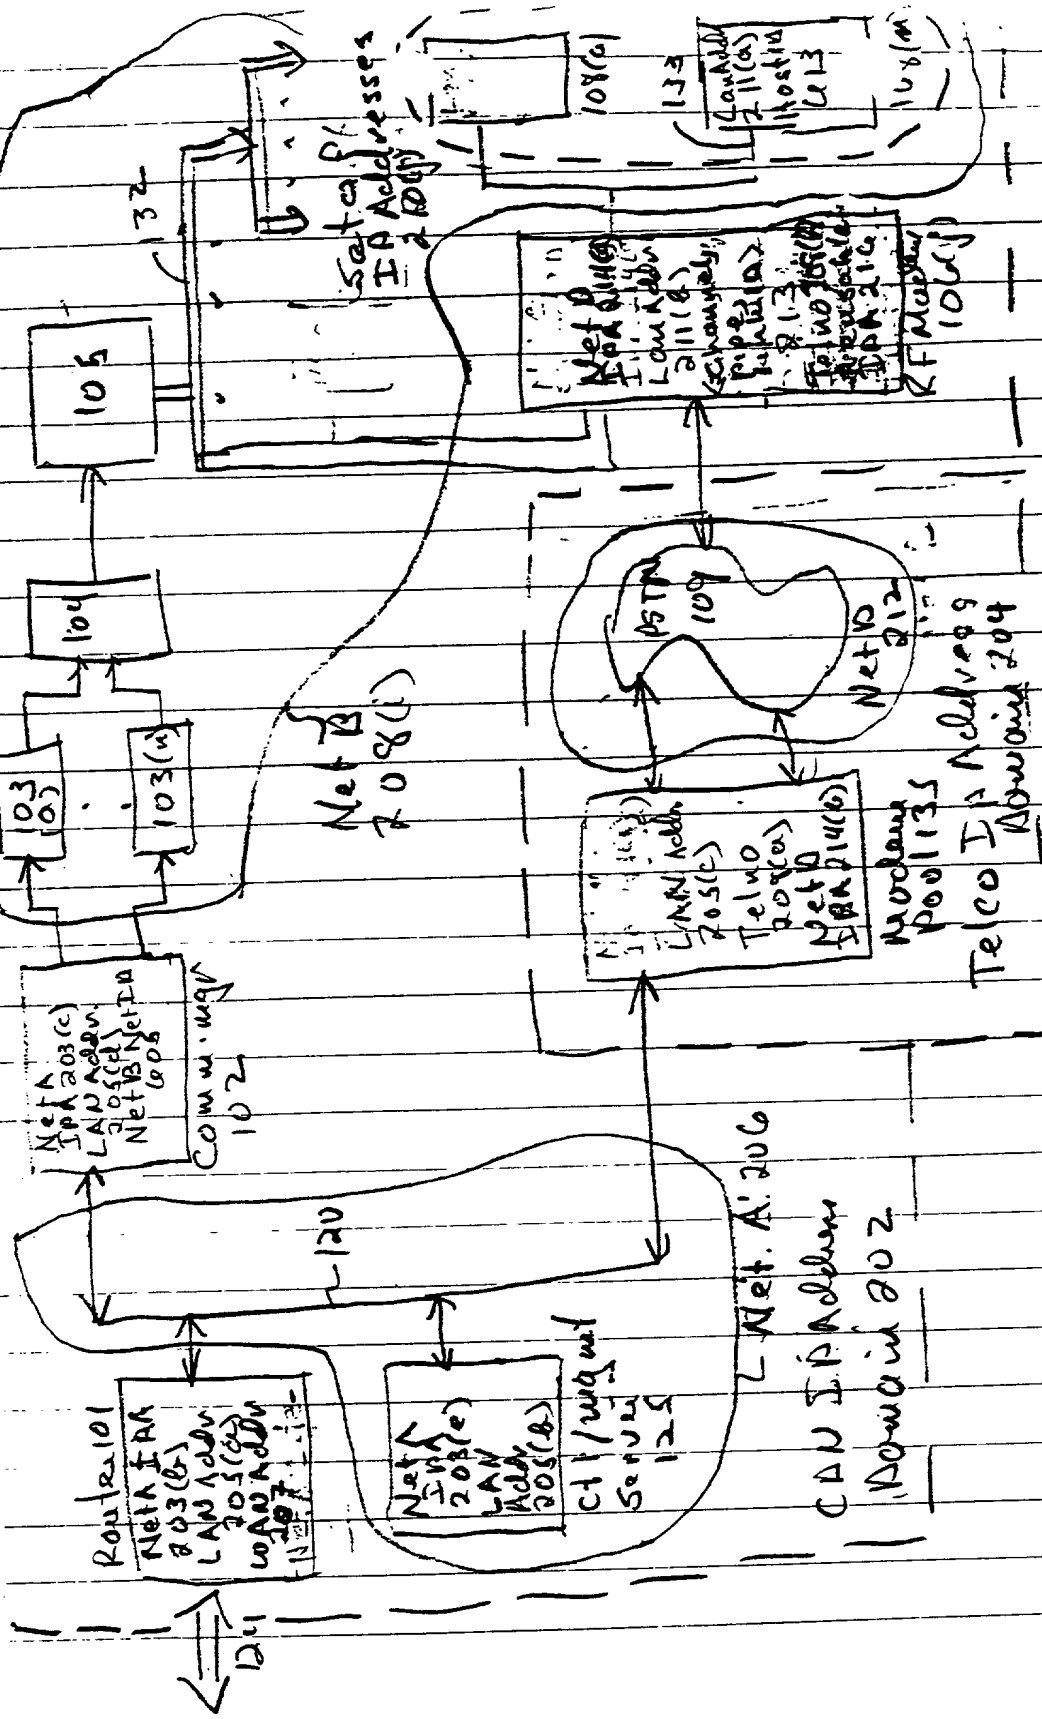 Router 101
Net A IPA
203(b)
LAN Addr
205(a)
WAN Addr
207
121
Net A
IPA
203(e)
LAN
Addr
205(b)
Ctl/mgmt
Server
125
120
Net A: 206
CDN IP Address
Domain 202
Net A
IPA 203(c)
LAN Addr.
205(d)
Net B Net ID
605
Comm. mgr
102
103
(a)
103(n)
104
105
132
Net B
208(i)
Set of
IP Addresses
108(a)
133
Lan Addr
211(a)
Host ID
613
108(n)
LAN Addr
205(c)
Tel no
208(a)
Net D
IPA 214(b)
Modem
Pool 135
PSTN
109
Net D
212
Telco IP Address
Domain 204
Net D
Lan Addr
211(b)
213
IPA 216
RF Modem
106(j)